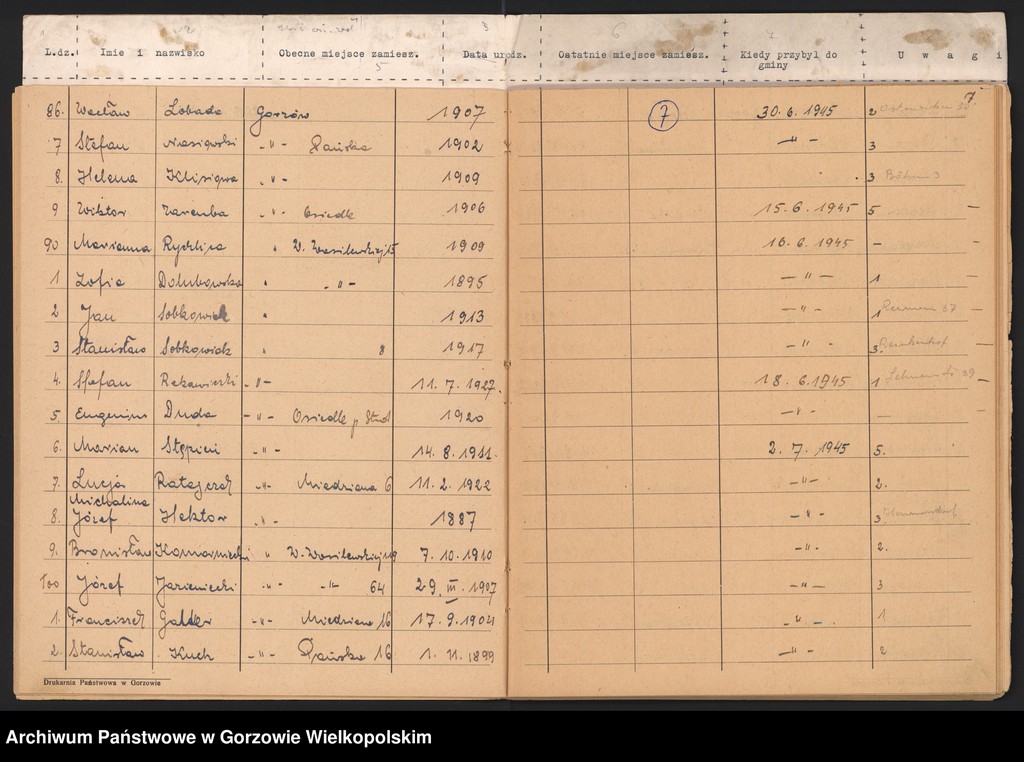 L.dz. Imie i nazwisko Obecne miejsce zamiesz. Data urodz. Ostatnie miejsce zamiesz. Kiedy przybył do gminy U w a g i
7
86. Wacław Lobada Gorzów 1907 7 30.6.1945 2
7 Stefan -"- Pańska 1902 -"- 3
8. Helena -"- 1909 3
9 Wiktor Zaremba -"- Osiedle 1906 15.6.1945 5
90 Marianna Rychlica " W. Wasilewskiej 15 1909 16.6.1945 -
1 Zofia " -"- 1895 -"- 1
2 Jan Sobkowiak " 1913 -"- 1
3 Stanisław Sobkowiak " 8 1917 -"- 3.
4. Stefan -"- 11.7.1927. 18.6.1945 1
5. Eugenius Duda -"- Osiedle 1920 -"- -
6. Marian Stępień -"- 14.8.1911. 2.7.1945 5.
7. Łucja Ratajczak -"- Miedziana 6 11.2.1922 -"- 2.
Michalina
8. Józef Hektor -"- 1887 -"- 3
9. Bronisław Komarnicki " W. Wasilewskiej 7.10.1910 -"- 2.
100 Józef Jasieniecki -"- -"- 64 29.III.1907 -"- 3
1. Franciszek -"- Miedziana 16 17.9.1904 -"- 1
2. Stanisław Kuch -"- Pańska 16 1.11.1899 -"- 2
Drukarnia Państwowa w Gorzowie
Archiwum Państwowe w Gorzowie Wielkopolskim